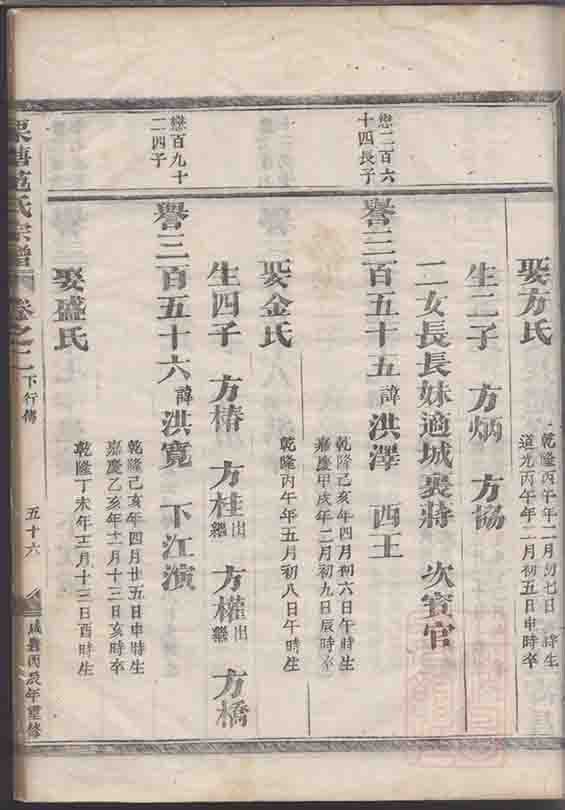 娶方氏
乾隆丙午年二月初七日 時生
道光丙午年二月初五日申時卒
生二子 方炳 方協
二女長長妹適城裴蔣 次賓官
戀二百六
十四長子
譽三百五十五諱洪澤 西王
乾隆己亥年四月初六日午時生
嘉慶甲戌年二月初九日辰時卒
娶金氏
乾隆丙午年五月初八日午時生
生四子 方椿 方桂出繼 方權出繼 方橋
戀百九十
二四子
譽三百五十六諱洪寬 下江演
乾隆己亥年四月廿五日申時生
嘉慶乙亥年十一月十三日亥時卒
娶盛氏
乾隆丁未年十二月十三日酉時生
栗塘范氏宗譜 卷之二 下行傳 五十六 咸豐丙辰年重修